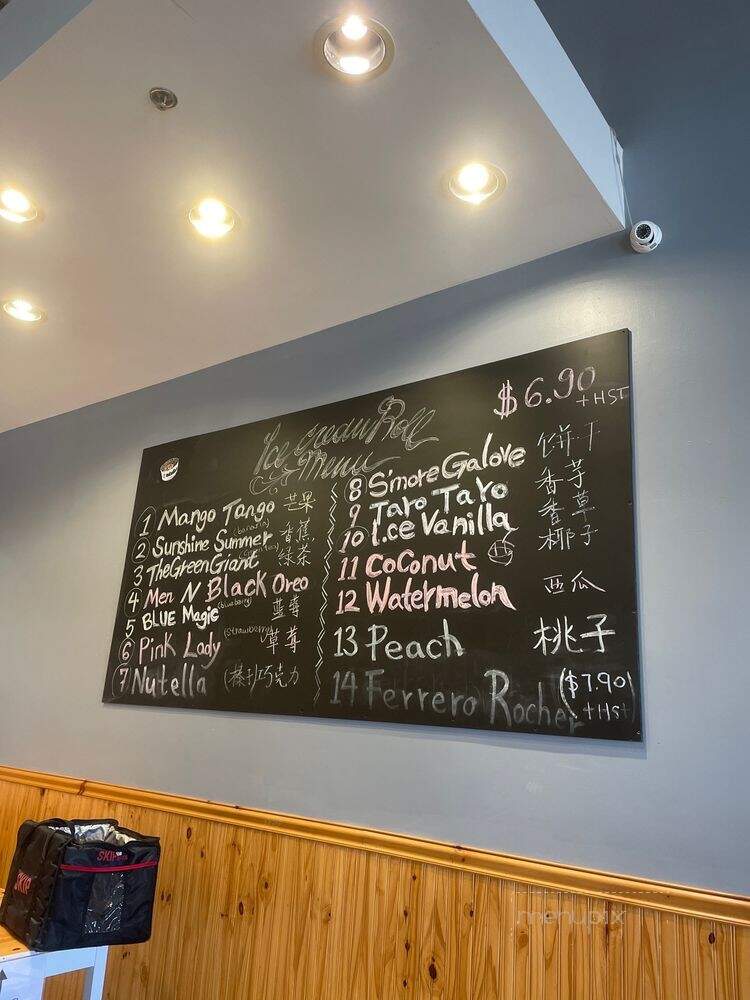 Ice cream Roll
Menu
$6.90
+HST
1 Mango Tango 芒果
2 Sunshine Summer (banana) 香蕉
3 The Green Giant 绿茶
4 Men N Black Oreo
5 BLUE Magic (blueberry) 蓝莓
6 Pink Lady (strawberry) 草莓
7 Nutella (榛子巧克力
8 S'more Galove 饼干
9 Taro Taro 香芋
10 I.ce Vanilla 香草
11 Coconut 椰子
12 Watermelon 西瓜
13 Peach 桃子
14 Ferrero Rocher ($7.90)
+HST
SKIP
SKIP
menupix